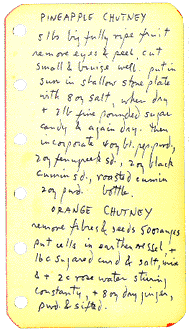 PINEAPPLE CHUTNEY
5 lb big fully ripe fruit
remove eyes & peel cut
small & bruise well. put in
sun in shallow stone plate
with 8 oz salt, when dry
+ 2 lb fine pounded sugar
candy & again dry. then
incorporate 4 oz bl. pep. pwd,
2 oz fenugreek sd., 2 oz black
cumin sd., roasted cumin
2 oz pwd. bottle.
ORANGE CHUTNEY
remove fibres & seeds 50 oranges
put cells in earthen vessel +
1 lb c sugared curd & salt, mix
& + 2 c rose water stirring
constantly, + 8 oz dry ginger,
pwd & sifted.